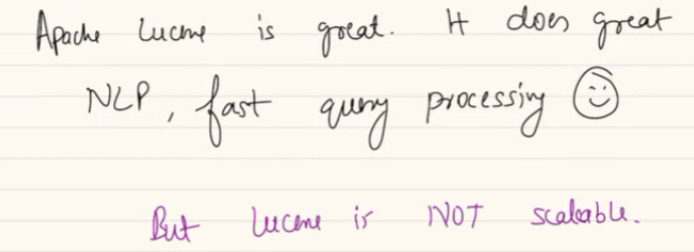 Apache Lucene is great. It does great
NLP, fast query processing
But Lucene is NOT scaleable.